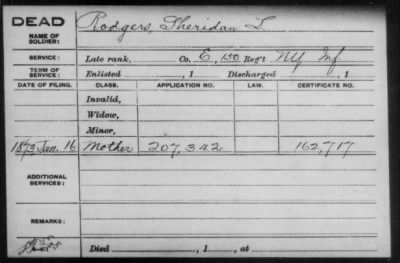 DEAD
NAME OF SOLDIER: Rodgers, Sheridan L.
SERVICE: Late rank, Co. E, 150 Reg't NY Inf
TERM OF SERVICE: Enlisted , 1 Discharged , 1
DATE OF FILING. CLASS. APPLICATION NO. LAW. CERTIFICATE NO.
Invalid,
Widow,
Minor,
1873 Jan. 16 Mother 207,342 162,717
ADDITIONAL SERVICES:
REMARKS:
Died , 1 , at